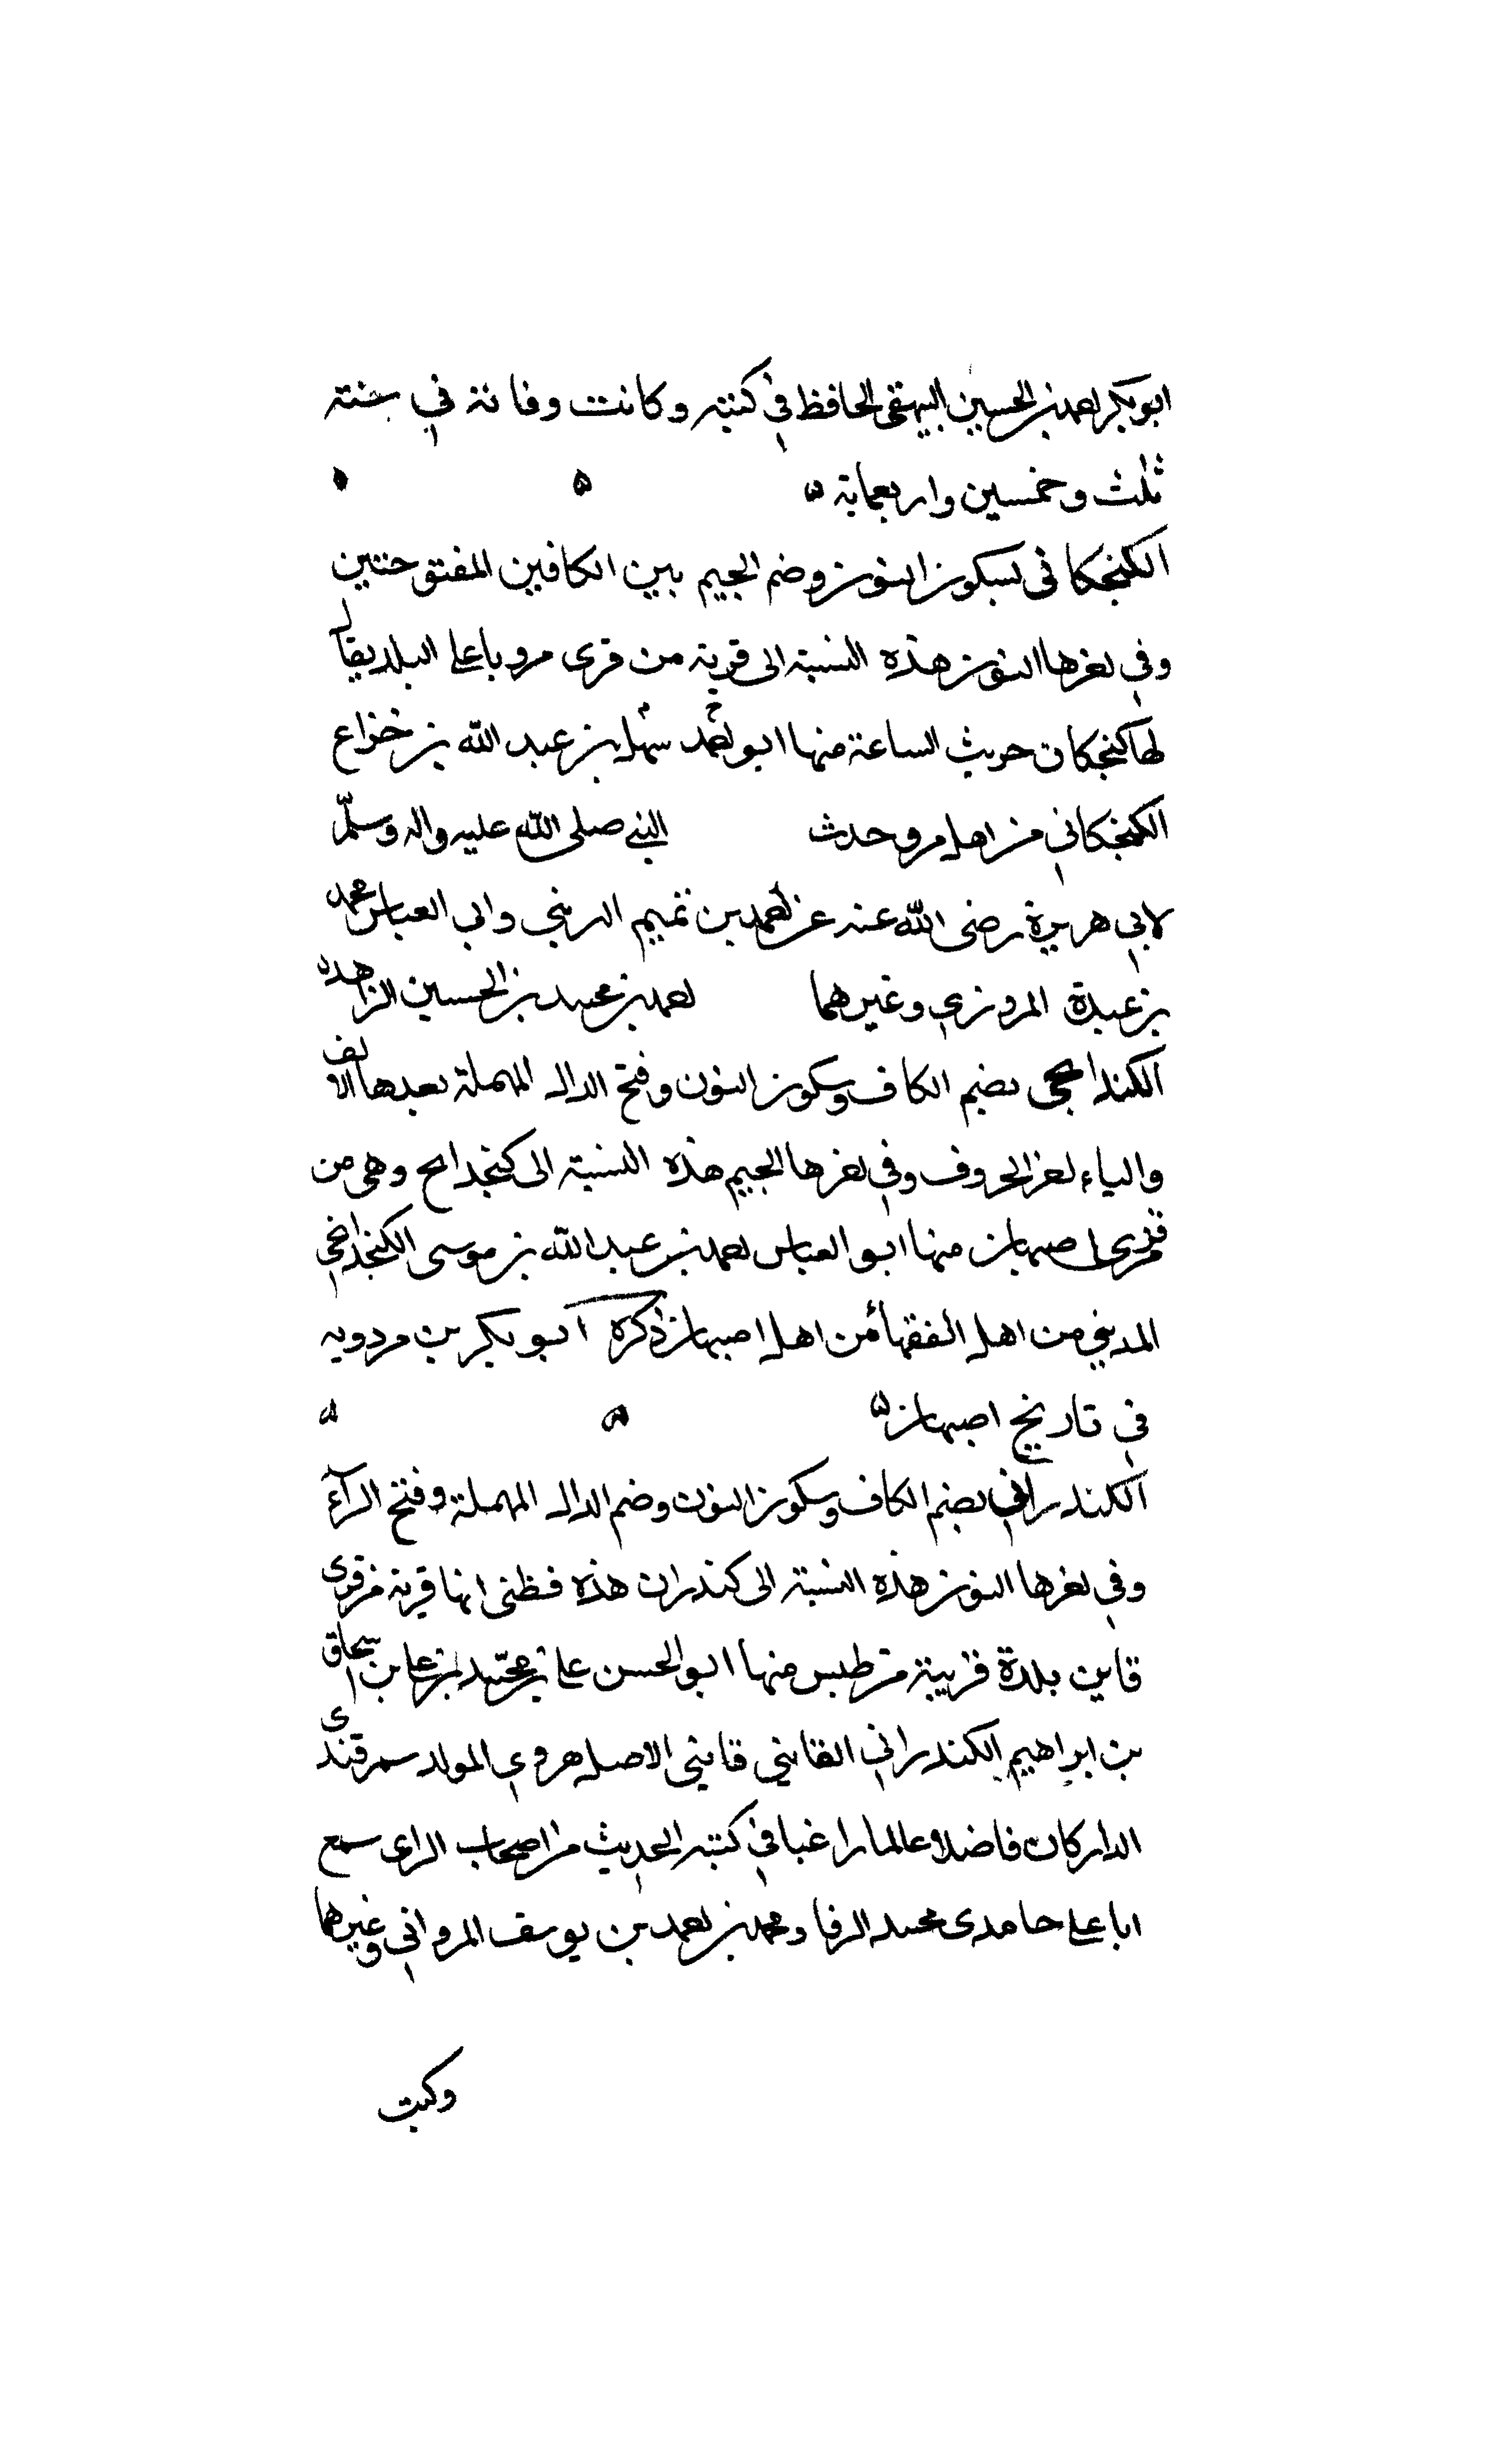 ابو بكر احمد بن الحسين البيهقى الحافظ في كتبه وكانت وفاته في سنة
ثلث وخمسين واربعماية
الكنجكانى بسكون النون وضم الجيم بين الكافين المفتوحتين
وفي اخرها النون هذه النسبة الى قرية من قرى مرو باعلى البلد يقال
لها كنجكان خربت الساعة منها ابو احمد سهل بن عبد الله بن خزاع
الكنجكاني من اهل مرو حدث النبي صلى الله عليه واله وسلّم
لابي هريرة رضى الله عنه عن احمد بن تميم وابي العباس محمد
بن عبدة المروزي وغيرهما احمد بن محمد بن الحسين الزاهد
الكنداىجى بضم الكاف وسكون النون وفتح الدال المهملة بعدها الالف
والياء اخر الحروف وفي اخرها الجيم هذه النسبة الى كنجدايح وهى من
قرى اصبهان منها ابو العباس احمد بن عبد الله بن موسى الكنجدايجي
المديني من اهل الفقهاء من اهل اصبهان ذكره ابو بكر بن مردويه
في تاريخ اصبهان
الكندراني بضم الكاف وسكون النون وضم الدال المهملة وفتح الراء
وفي اخرها النون هذه النسبة الى كندران هذه فظنى انها قرية من قرى
قاين بلدة قريبة من طبس منها ابو الحسن على بن محمّد بن على بن اسحاق
بن ابراهيم الكندراني القايني قاينى الاصل هروي المولد سمرقندى
الدار كان فاضلا عالما راغبا في كتبه الحديث من اصحاب الراى سمع
ابا على حامدى محمد الرفا ومحمد بن احمد بن يوسف المرواني وغيرهما
وكتب